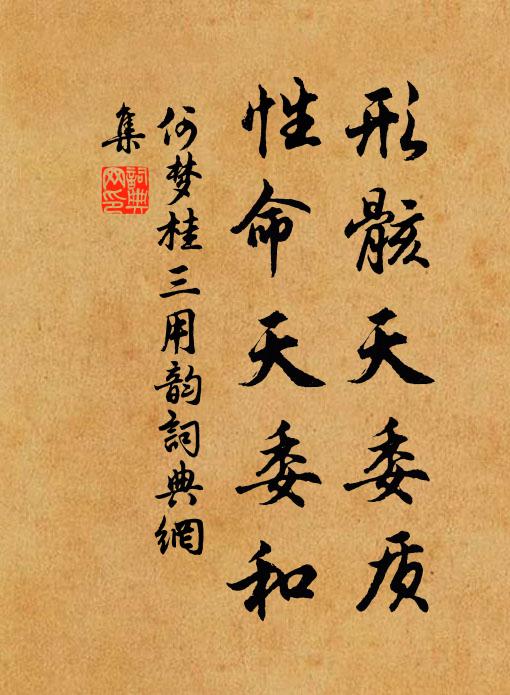 形骸天委质
性命天委和
何梦桂三用韵詞典網
集
詞典
网印